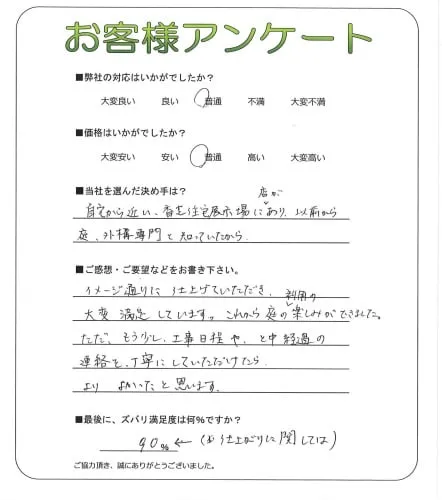 お客様アンケート
■弊社の対応はいかがでしたか?
大変良い 良い 普通 不満 大変不満
■価格はいかがでしたか?
大変安い 安い 普通 高い 大変高い
■当社を選んだ決め手は?
店が
自宅から近い、香芝住宅展示場にあり、以前から
庭、外構専門と知っていたから
■ご感想・ご要望などをお書き下さい。
イメージ通りに仕上げていただき、
利用の
大変満足しています。これから庭の楽しみができました。
ただ、もう少し、工事日程や、と中経過の
連絡を、丁寧にしていただけたら
より よかったと思います。
■最後に、ズバリ満足度は何%ですか?
90% ← (仕上がりに関しては)
ご協力頂き、誠にありがとうございました。